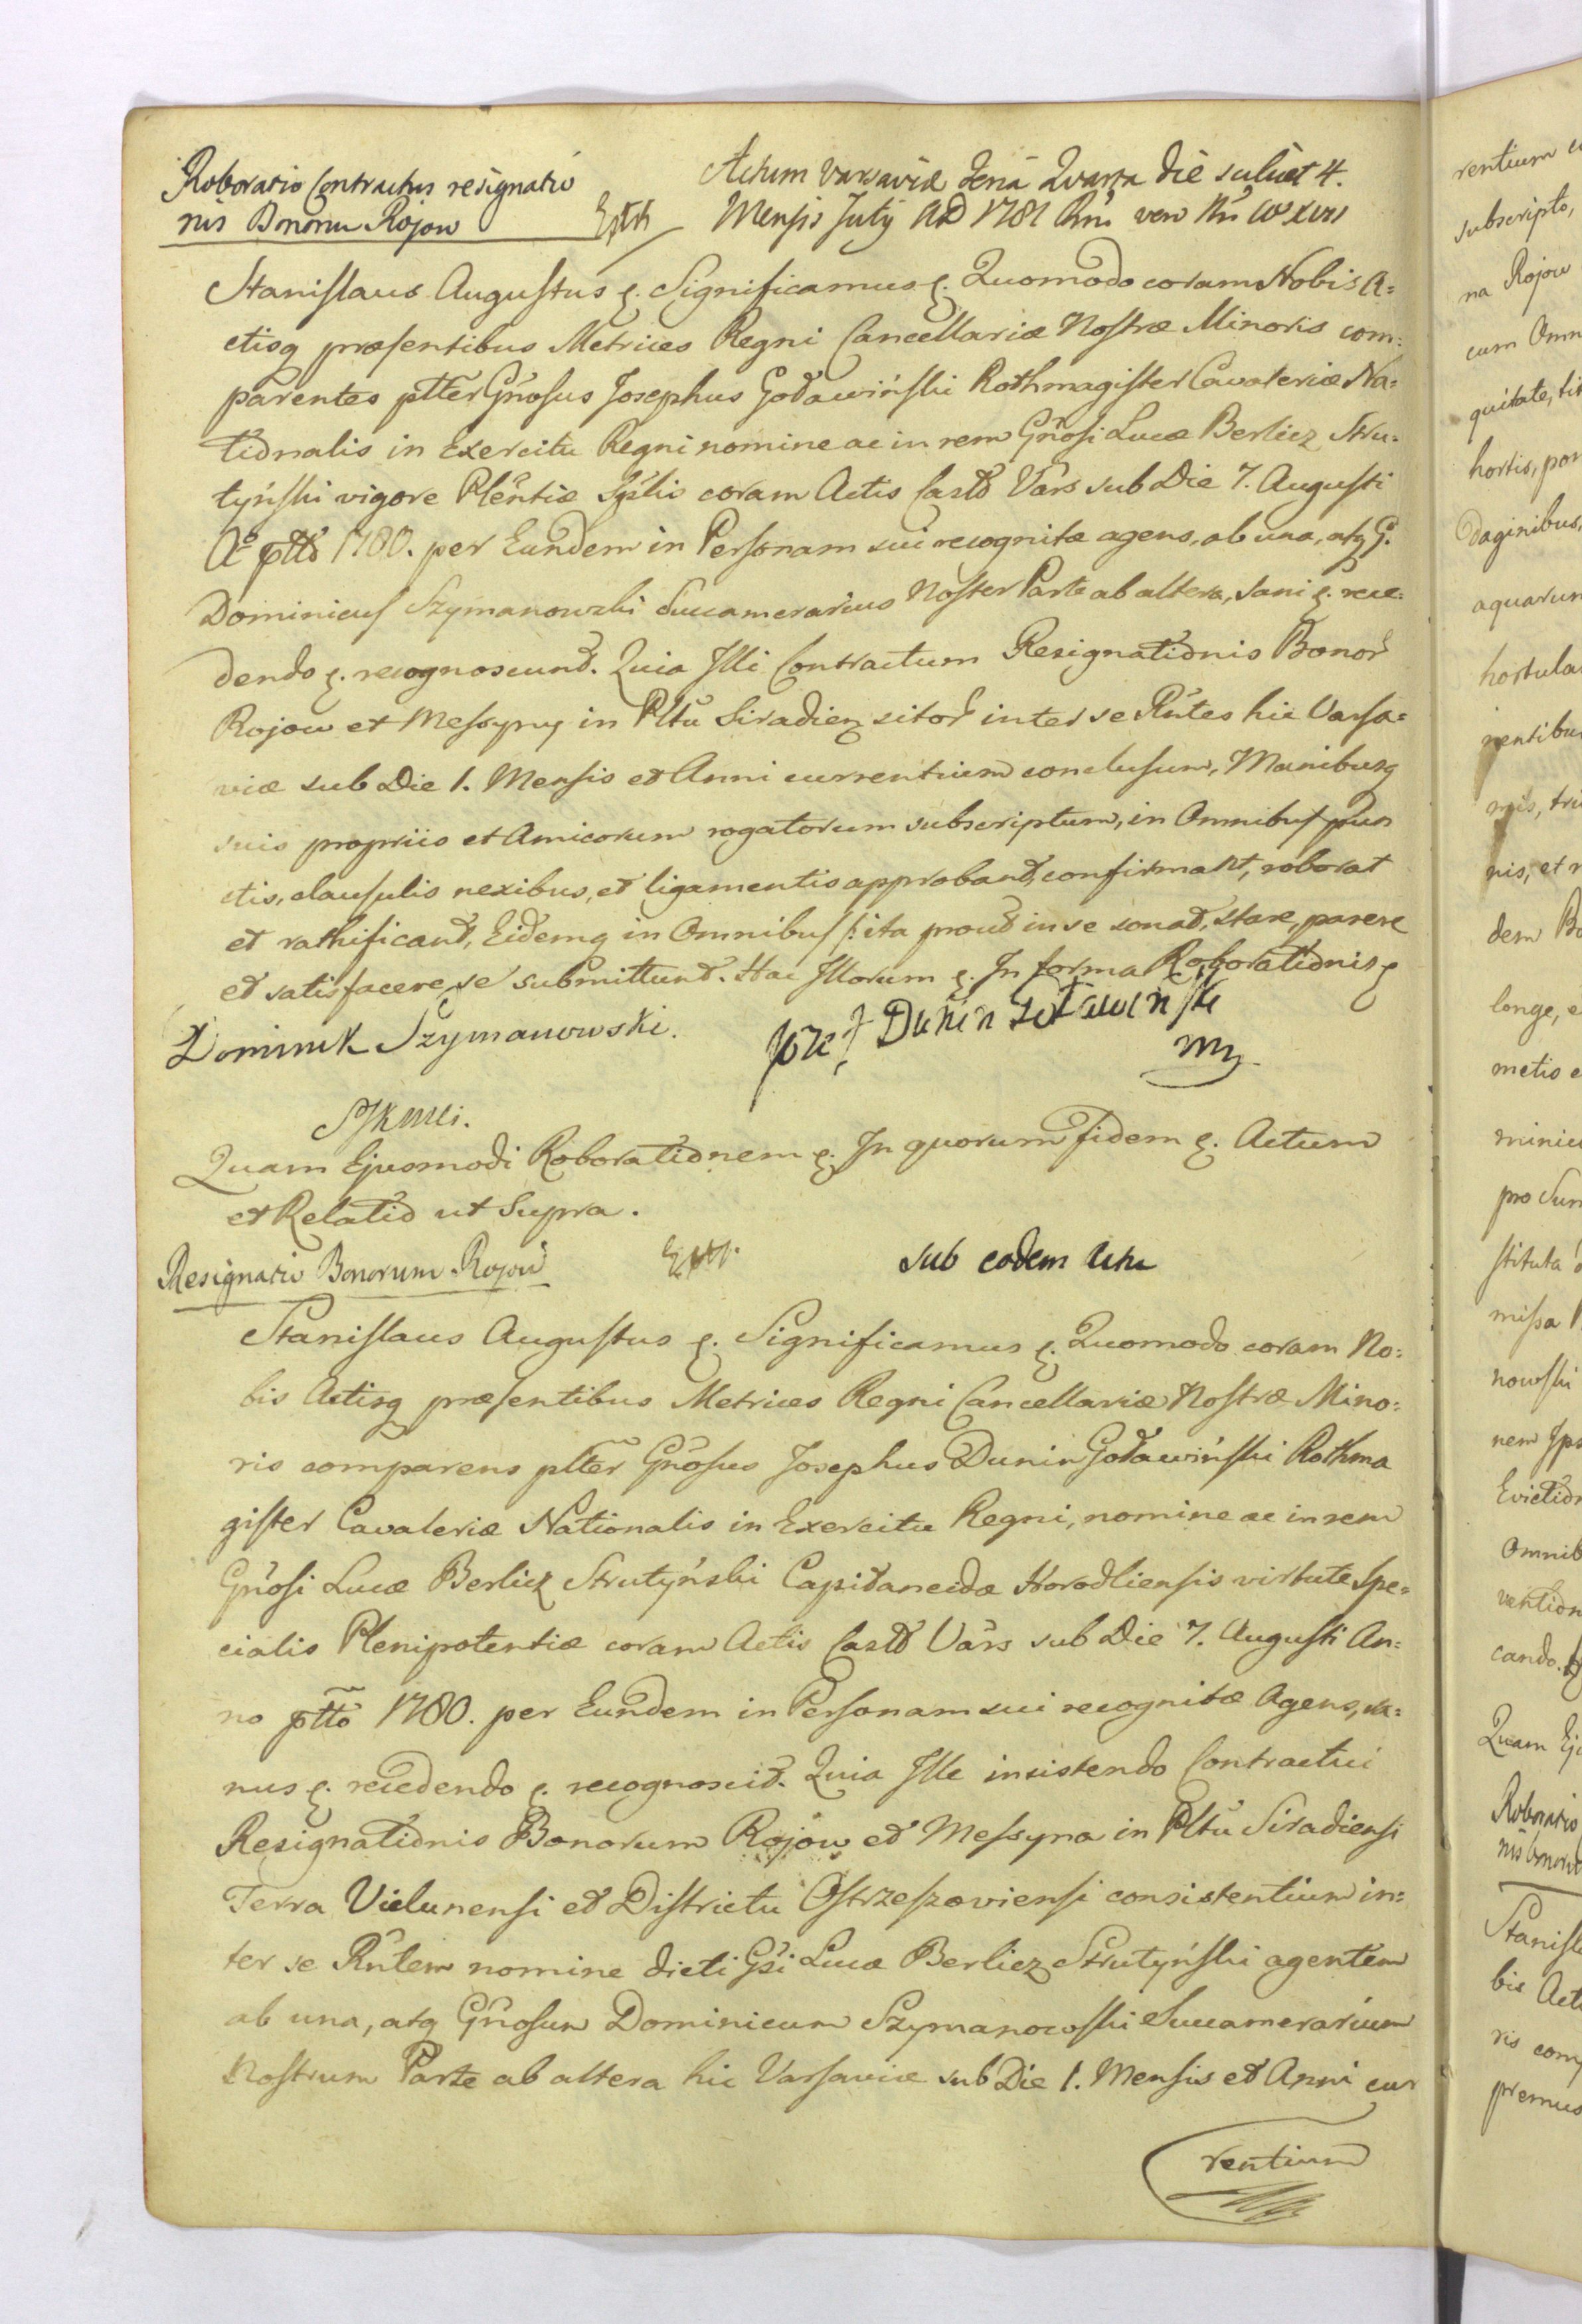 Roboratio Contractus resignatio
nis Bonoru Rojow Extr
Actum Varsaviæ Feria Quarta die scilicet 4.
Mensis July AD 1781 Rni vero Nri XVII
Stanislaus Augustus ę. Significamus ę. Quomodo coram Nobis A=
ctisq præsentibus Metrices Regni Cancellariæ Nostræ Minoris com=
parentes pltter Gnosus Josephus Goławiński Rothmagister Cavaleriæ Na=
tionalis in Exercitu Regni nomine ac in rem Gnosi Lucæ Berlicz Stru=
tyński vigore Plentiæ Splis coram Actis Castr Vars sub Die 7. Augusti
Ao ptto 1780. per Eundem in Personam sui recognitæ agens, ab una, atq G.
Dominicus Szymanowski Succamerarius Noster Parte ab altera, sani ę. rece=
dendo ę. recognoscunt. Quia Illi Contractum Resignationis Bonor
Rojow et Messyny in Pltu Siradien sitor inter se Rntes hic Varsa=
viæ sub Die 1. Mensis et Anni currentium conclusum, Manibusq
suis propriis et Amicorum rogatorum subscriptum, in Omnibus pun
ctis, clausulis nexibus, et ligamentis approbant, confirmant, roborat
et rathificant, Eidemq in Omnibus /: ita prout in se sonat, stare, parere
et satisfacere se submittunt. Hac Illorum ę. In forma Roborationis ę
Dominik Szymanowski. Józef Dunin Goławinski
mp.
SJKMci.
Quam Ejusmodi Roborationem ę. In quorum fidem ę. Actum
et Relatio ut Supra.
Resignatio Bonorum Rojow Extr. sub eodem Actu
Stanislaus Augustus ę. Significamus ę. Quomodo coram No=
bis Actisq præsentibus Metrices Regni Cancellariæ Nostræ Mino=
ris comparens pltter Gnosus Josephus Dunin Goławiński Rothma
gister Cavaleriæ Nationalis in Exercitu Regni, nomine ac in rem
Gnosi Lucæ Berlicz Strutyński Capitaneidæ Horodliensis virtute Spe=
cialis Plenipotentiæ coram Actis Castr Vars sub Die 7. Augusti An=
no ptto 1780. per Eundem in Personam sui recognitæ Agens, sa=
nus ę. recedendo ę. recognoscit. Quia Ille insistendo Contractui
Resignationis Bonorum Rojow et Messyna in Pltu Siradiensi
Terra Vielunensi et Districtu Ostrzeszoviensi consistentium in=
ter se Rntem nomine dicti Gsi Lucæ Berlicz Strutyński agentem
ab una, atq Gnosum Dominicum Szymanowski Succamerarium
Nostrum Parte ab altera hic Varsaviæ sub Die 1. Mensis et Anni cur
rentium
rentium
subscripto,
na Rojow
cum Omn
quitate,
hortis,
daginibus,
aquarum
hortula
nentibu
nis, et
dem Bo
longe, e
metis e
minicu
pro Sum
stituta
missa
nowski
nem Ips
Evictio
Omnib
ventio
cando.
Quam Ej
Roboratio
nis Bonoru
Stanisla
bis Act
ris com
premus